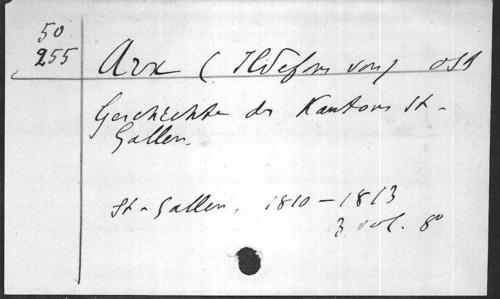 50
255
Arx (Ildefons von) OSB
Geschichte des Kantons St-
Gallen.
St-Gallen, 1810-1813
3 vol. 8º